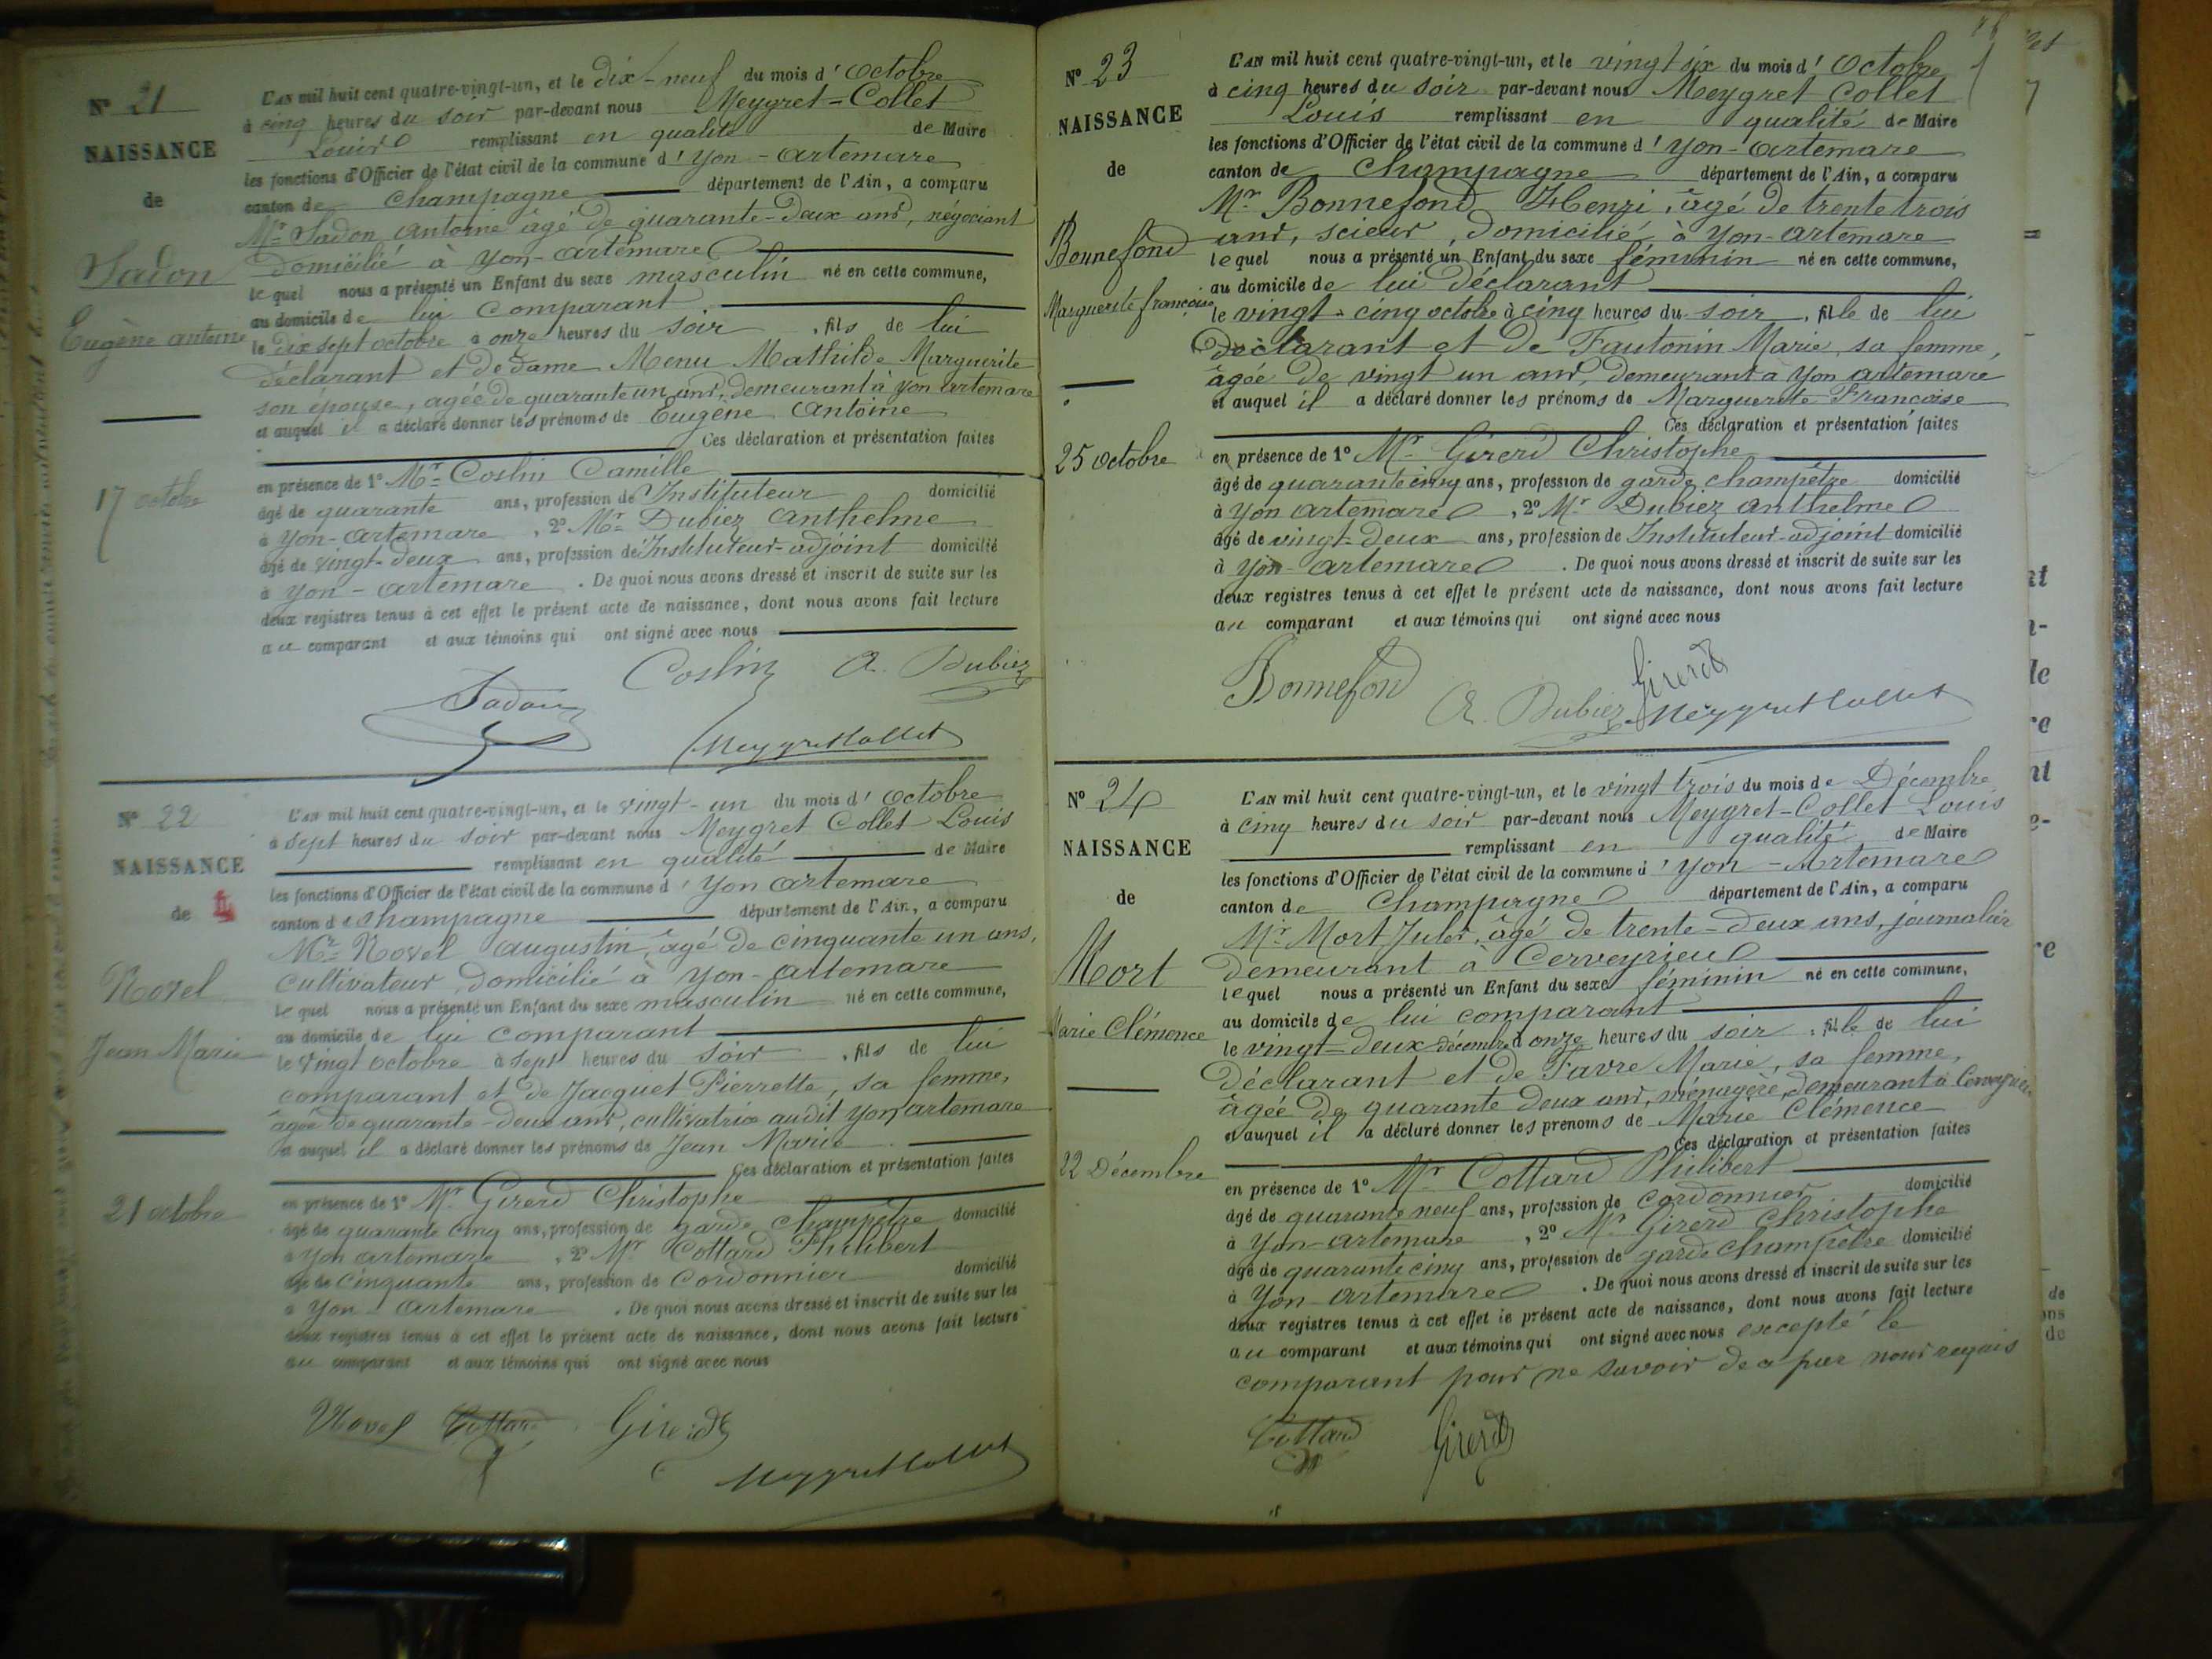 N° 21
NAISSANCE
de
Sadon
Eugène antoine
17 octobre
L'AN mil huit cent quatre-vingt-un, et le dix-neuf du mois d'Octobre
à cinq heures du soir par-devant nous Meygret-Collet
Louis remplissant en qualité de Maire
les fonctions d'Officier de l'état civil de la commune d'Yon-artemare
canton de Champagne département de l'Ain, a comparu
Mr Sadon Antoine âgé de quarante-deux ans, négociant
domicilié à Yon-artemare
lequel nous a présenté un Enfant du sexe masculin né en cette commune,
au domicile de lui comparant
le dix sept octobre à onze heures du soir, fils de lui
déclarant et de dame Menu Mathilde Marguerite
son épouse, agée de quarante un ans, demeurant à yon artemare
et auquel il a déclaré donner les prénoms de Eugène Antoine
Ces déclaration et présentation faites
en présence de 1° Mr Coslin Camille
âgé de quarante ans, profession de Instituteur domicilié
à Yon-artemare, 2° Mr Dubiez Anthelme
âgé de vingt-deux ans, profession de Instituteur-adjoint domicilié
à Yon-artemare. De quoi nous avons dressé et inscrit de suite sur les
deux registres tenus à cet effet le présent acte de naissance, dont nous avons fait lecture
au comparant et aux témoins qui ont signé avec nous
Coslin A. Dubiez
Sadon
Meygret Collet
N° 22
NAISSANCE
de
Novel
Jean Marie
21 octobre
L'AN mil huit cent quatre-vingt-un, et le vingt-un du mois d'octobre
à sept heures du soir par-devant nous Meygret Collet Louis
remplissant en qualité de Maire
les fonctions d'Officier de l'état civil de la commune d'Yon artemare
canton de Champagne département de l'Ain, a comparu
Mr Novel Augustin, âgé de cinquante un ans,
cultivateur domicilié à Yon-artemare
lequel nous a présenté un Enfant du sexe masculin né en cette commune,
au domicile de lui comparant
le vingt octobre à sept heures du soir, fils de lui
comparant et de Jacquet Pierrette, sa femme,
âgée de quarante-deux ans, cultivatrice audit yon artemare
et auquel il a déclaré donner les prénoms de Jean Marie
Ces déclaration et présentation faites
en présence de 1° Mr Girerd Christophe
âgé de quarante cinq ans, profession de garde champêtre domicilié
à Yon artemare, 2° Mr Cottard Philibert
âgé de cinquante ans, profession de Cordonnier domicilié
à Yon-artemare. De quoi nous avons dressé et inscrit de suite sur les
deux registres tenus à cet effet le présent acte de naissance, dont nous avons fait lecture
au comparant et aux témoins qui ont signé avec nous
Novel Cottard Girerd
Meygret Collet
N° 23
NAISSANCE
de
Bonnefond
Marguerite françoise
25 octobre
L'AN mil huit cent quatre-vingt-un, et le vingt six du mois d'Octobre
à cinq heures du soir par-devant nous Meygret Collet
Louis remplissant en qualité de Maire
les fonctions d'Officier de l'état civil de la commune d'yon-artemare
canton de Champagne département de l'Ain, a comparu
Mr Bonnefond Henri, âgé de trente trois
ans, scieur, domicilié à Yon-artemare
lequel nous a présenté un Enfant du sexe féminin né en cette commune,
au domicile de lui déclarant
le vingt-cinq octobre à cinq heures du soir, fille de lui
déclarant et de Fautonin Marie, sa femme,
âgée de vingt un ans, demeurant à Yon artemare
et auquel il a déclaré donner les prénoms de Marguerite Françoise
Ces déclaration et présentation faites
en présence de 1° Mr Girerd Christophe
âgé de quarante cinq ans, profession de garde champêtre domicilié
à Yon artemare, 2° Mr Dubiez anthelme
âgé de vingt-deux ans, profession de Instituteur-adjoint domicilié
à Yon-artemare. De quoi nous avons dressé et inscrit de suite sur les
deux registres tenus à cet effet le présent acte de naissance, dont nous avons fait lecture
au comparant et aux témoins qui ont signé avec nous
Bonnefond A. Dubiez Girerd Meygret Collet
N° 24
NAISSANCE
de
Mort
Marie Clémence
22 Décembre
L'AN mil huit cent quatre-vingt-un, et le vingt trois du mois de Décembre
à cinq heures du soir par-devant nous Meygret-Collet Louis
remplissant en qualité de Maire
les fonctions d'Officier de l'état civil de la commune d'Yon-Artemare
canton de Champagne département de l'Ain, a comparu
Mr Mort Jules, âgé de trente-deux ans, journalier
demeurant à Cerveyrieu
lequel nous a présenté un Enfant du sexe féminin né en cette commune,
au domicile de lui comparant
le vingt-deux décembre à onze heures du soir, fille de lui
déclarant et de Favre Marie, sa femme,
âgée de quarante deux ans, ménagère, demeurant à Cerveyrieu
et auquel il a déclaré donner les prénoms de Marie Clémence
Ces déclaration et présentation faites
en présence de 1° Mr Cottard Philibert
âgé de quarante neuf ans, profession de cordonnier domicilié
à Yon-artemare, 2° Mr Girerd Christophe
âgé de quarante cinq ans, profession de garde champêtre domicilié
à Yon-artemare. De quoi nous avons dressé et inscrit de suite sur les
deux registres tenus à cet effet le présent acte de naissance, dont nous avons fait lecture
au comparant et aux témoins qui ont signé avec nous excepté le
comparant pour ne savoir de ce par nous requis
Cottard Girerd